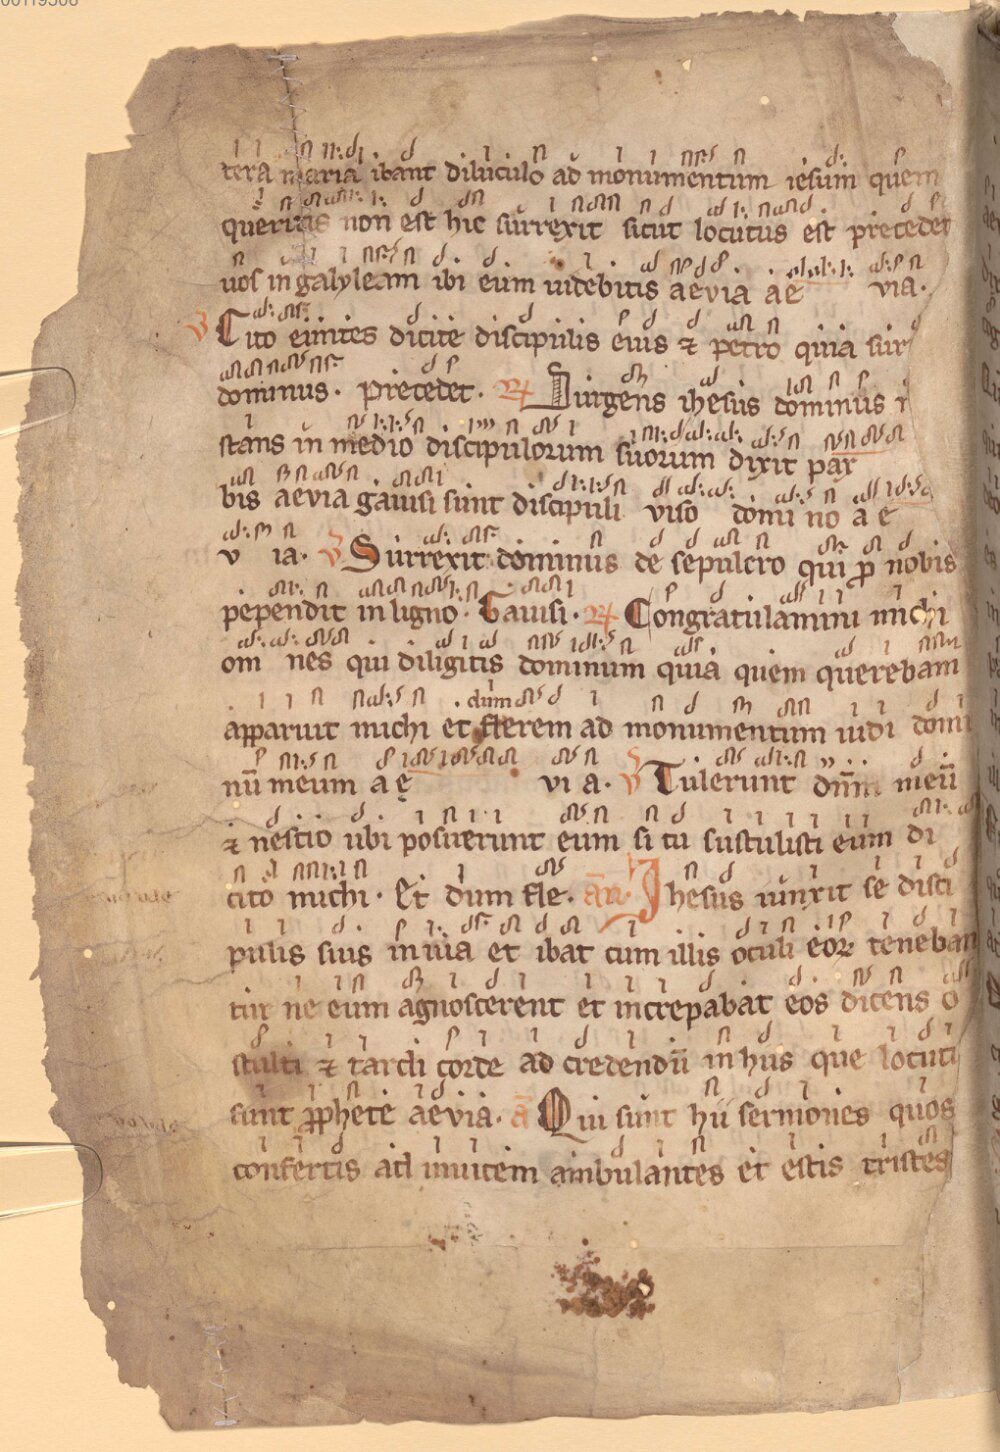 tera maria ibant diluculo ad monumentum iesum quem
queritis non est hic surrexit sicut locutus est precedet
uos in galyleam ibi eum uidebitis aevia ae via.
V Cito euntes dicite discipulis eius ⁊ petro quia sur
dominus. precedet. R Surgens ihesus dominus
stans in medio discipulorum suorum dixit pax
bis aevia gauisi sunt discipuli viso domi no a e
v ia. V Surrexit dominus de sepulcro qui p nobis
pependit in ligno. Gauisi. R Congratulamini michi
om nes qui diligitis dominum quia quem querebam
dum
apparuit michi et flerem ad monumentum uidi domi
nū meum a e vi a. V Tulerunt dn̄m meū
⁊ nescio ubi posuerunt eum si tu sustulisti eum di
cito michi. Et dum fle. an. Ihesus iunxit se disci
pulis suis in uia et ibat cum illis oculi eoꝝ teneban
tur ne eum agnoscerent et increpabat eos dicens o
stulti ⁊ tardi corde ad credendū in hiis que locuti
sunt pphete aevia. a Qui sunt hii sermones quos
confertis ad inuicem ambulantes et estis tristes